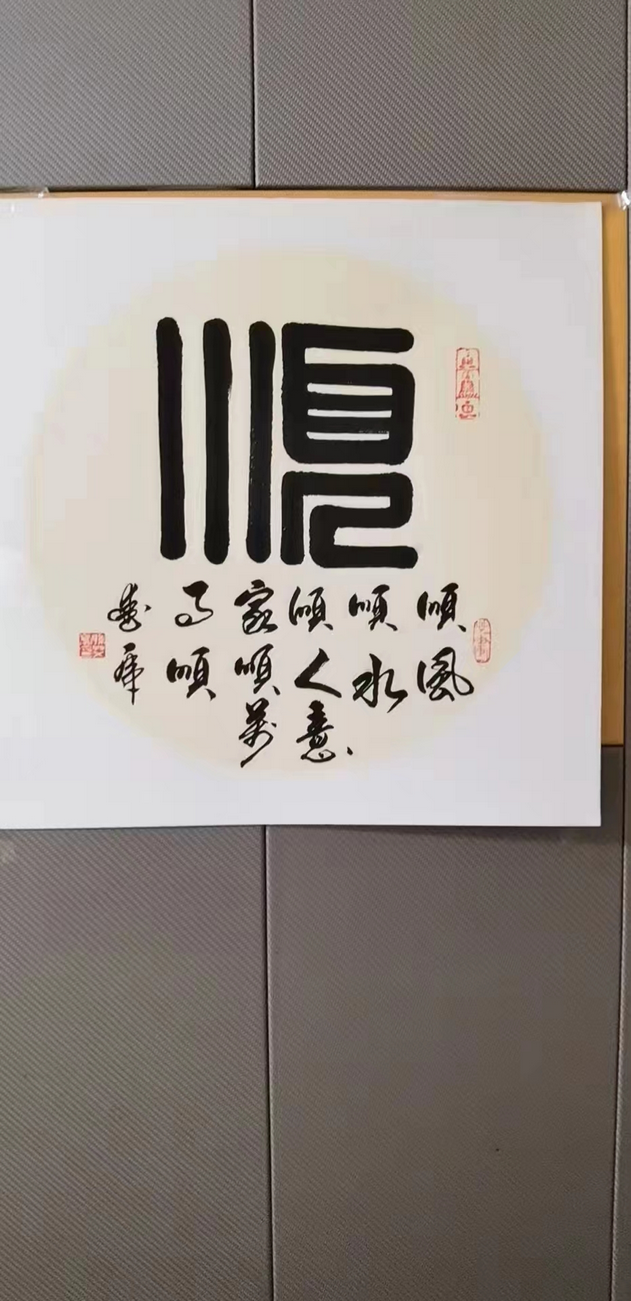 順
順風
順水
順人意
家順萬
事順